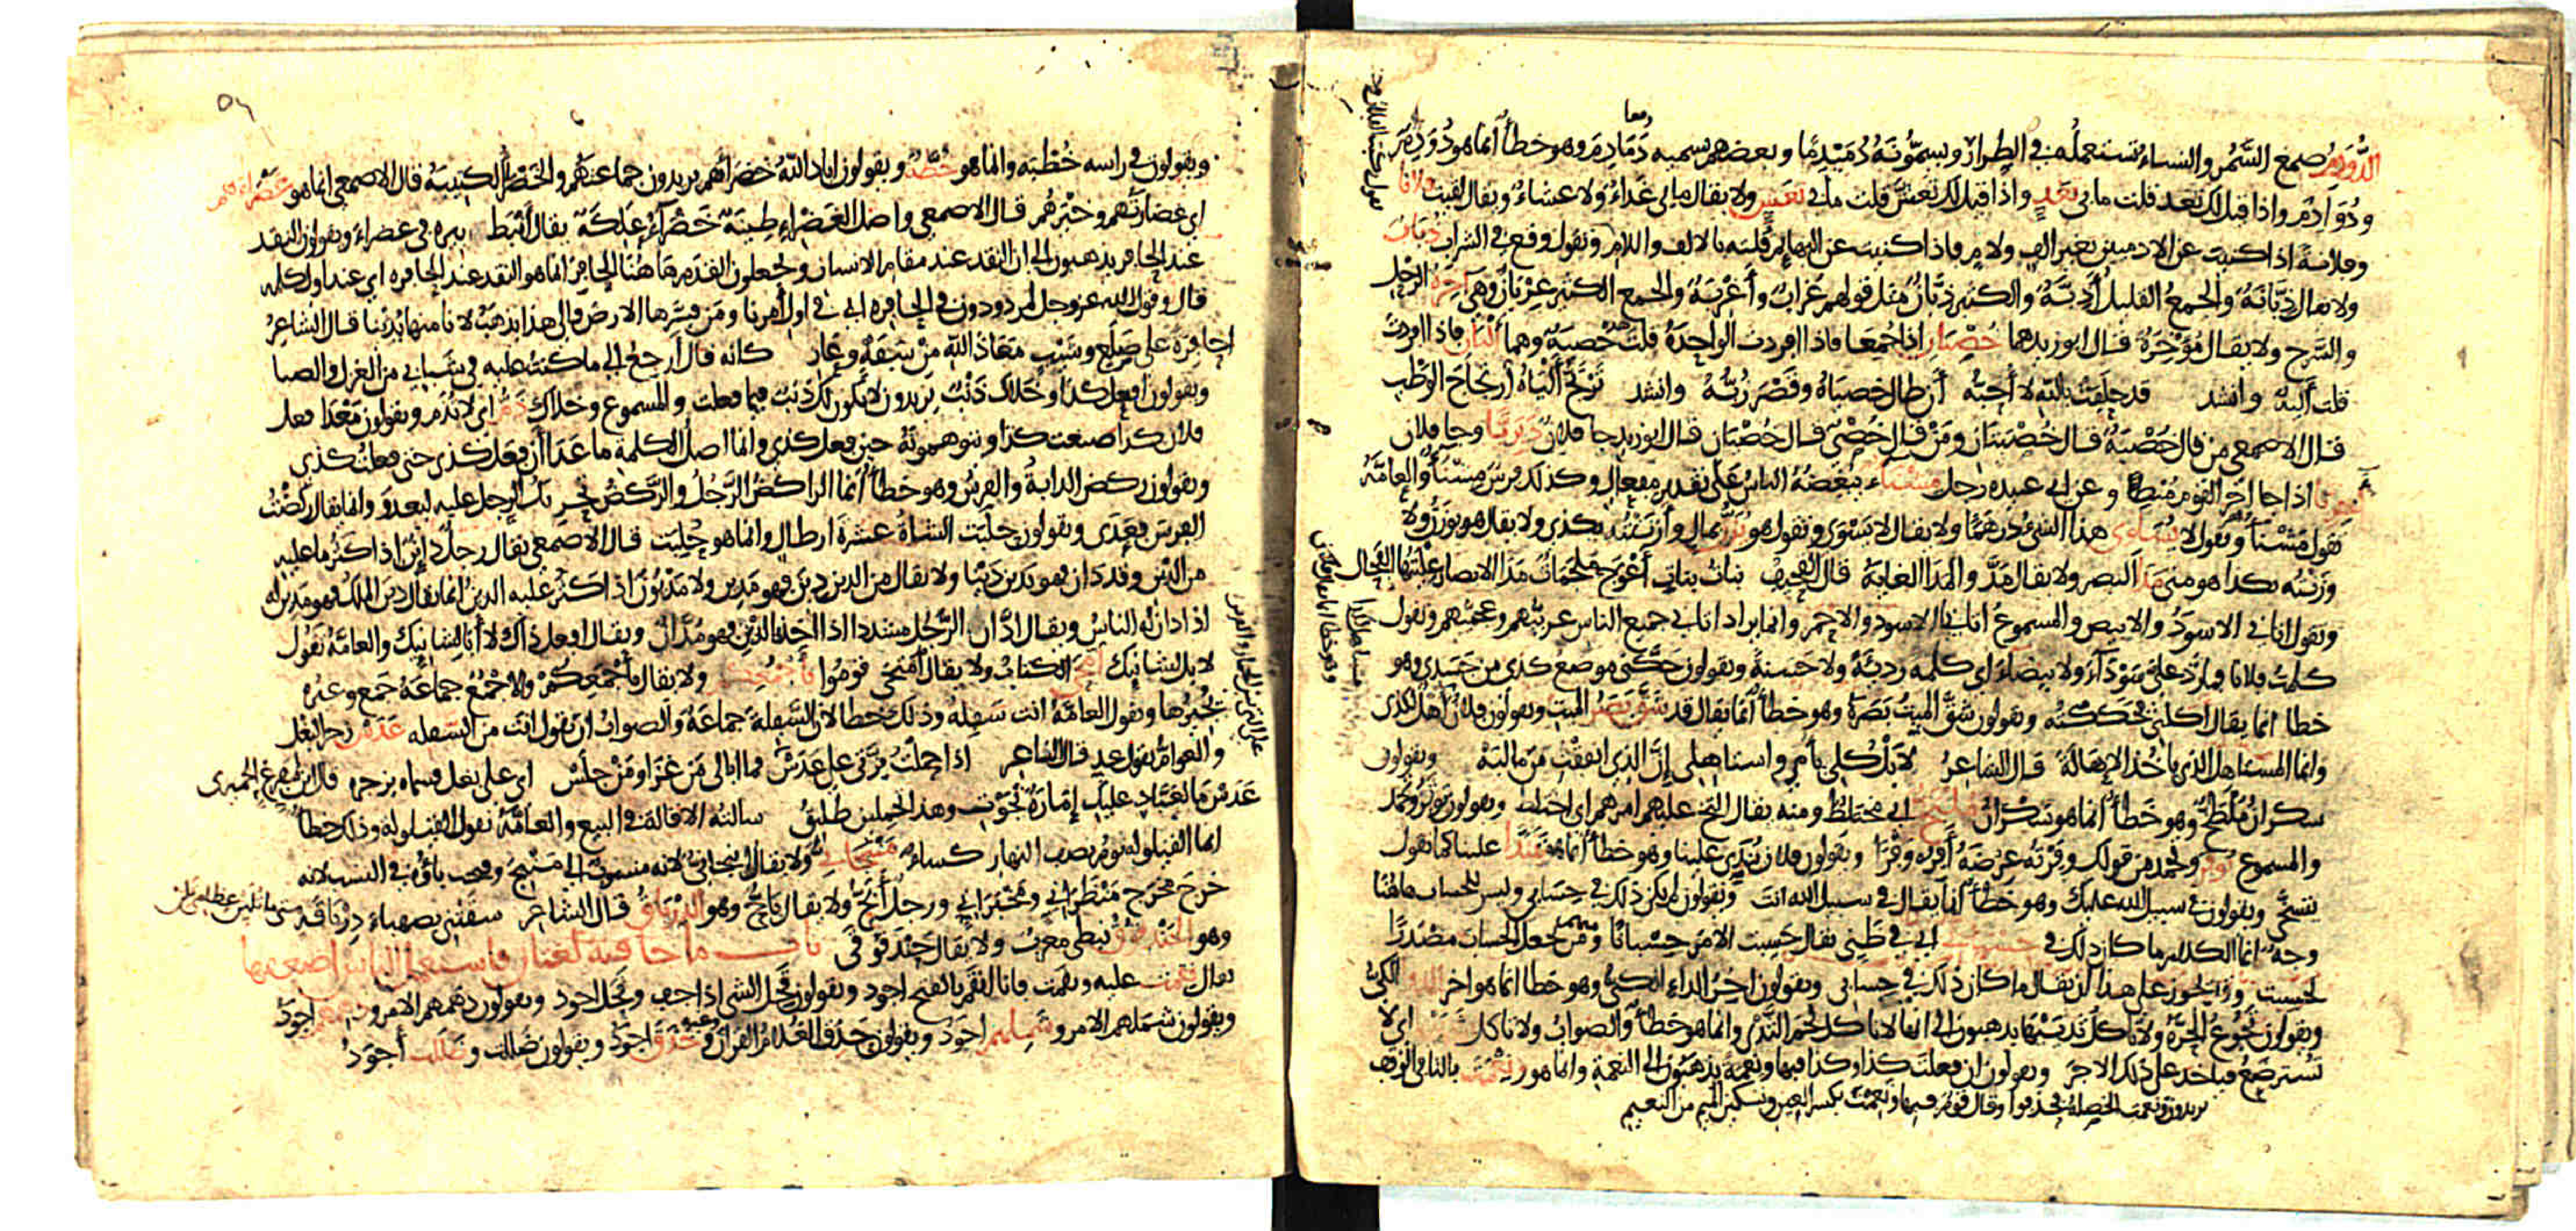 الدُّوَدِمُ صمغ السَّمُر والنساء تستعمله في الطراز ويسمُّونَهُ دُمَيْدِمًا وبعضهم يسميه دَمَادِمَ وهو خطأ انما هو دُوَدِمٌ
ودُوَادِمٌ واذا قيل لك تغد قلت ما بي تغد واذا قيل لك تعش قلت ما بي تعش ولا يقال ما بي غداء ولا عشاء ويقال لقيت فلانا
وفلانة اذا كنيت عن الادميين بغير الف ولام فاذا كنيت عن البهائم قلته بالالف واللام وتقول وقع في الشراب ذباب
ولا يقال ذبّانة والجمع القليل أذبّة والكثير ذبّان مثل قولهم غراب وأغربة والجمع الكثير غربان وهي آخرة الرحل
والسرج ولا يقال مؤخرة قال ابو زيد هما خصيان اذا جمعا فاذا افردت الواحدة قلت خصية وهما أليان فاذا افردت
قلت ألية وانشد قد حلفت بالله لا أحبه أن طال خصياه وقصر زبه وانشد ترتج ألياه ارتجاج الوطب
قال الاصمعي من قال خصية قال خصيتان ومن قال خصي قال خصيان قال ابو زيد جا فلان دبريا وجا فلان
اخريا اذا جا اخر القوم مبطئا وعن ابي عبيده رجل مشناء يبغضه الناس على تقدير مفعال وكذلك فرس مشنأ والعامّة
تقول مشنأ وتقول لا يساوي هذا الشئ درهما ولا يقال لا يسوى وتقول هو يزن بمال وأزننته بكذى ولا يقال هو يوزن ولا
وزنته بكذا هو مني مدا البصر ولا يقال مدّ والمدا الغاية قال القحيف بنات بنات أعوج ملجمات مدا الابصار علّيتها الفحال
وتقول اتاني الاسود والابيض والمسموع اتاني الاسود والاحمر وانما يراد اتاني جميع الناس عربيهم وعجميهم وتقول
كلمت فلانا فما ردّ علي سوداء ولا بيضاء اي كلمه رديئة ولا حسنة ويقولون حكني موضع كذى من جسدي وهو
خطا انما يقال أكلني فحككته ويقولون شقّ الميت بصره وهو خطأ انما يقال قد شقّ بصر الميت ويقولون فلان أهل لكذى
وانما المستاهل الذي ياخذ الاهالة قال الشاعر لا بل كلي يا مي واستاهلي إن الذي انفقت من ماليه ويقولون
سكران ملطخ وهو خطأ انما هو سكران ملتخ اي مختلط ومنه يقال التخ عليهم امرهم اي اختلط ويقولون توثر وتحمد
والمسموع توفر وتحمد من قولك وفرته عرضه أفره وفرا ويقولون فلان يندى علينا وهو خطأ انما هو يتندا علينا كما تقول
يتسخى ويقولون في سبيل الله عليك وهو خطأ انما يقال في سبيل الله انت ويقولون لم يكن ذلك في حسابي وليس للحساب هاهنا
وجه انما الكلام ما كان ذلك في حسباني اي في ظني يقال حسبت الامر حسبانا ومن جعل الحساب مصدرًا
لحسبت يجوز على هذا ان يقال ما كان ذلك في حسابي ويقولون اخر الداء الكي وهو خطا انما هو اخر الداء الكيّ
ويقولون تجوع الحرة ولا تاكل ثديها يذهبون الى انها لا تاكل لحم الثدي وانما هو خطأ والصواب ولا تاكل بثدييها اي لا
تسترضع فياخذ على ذلك الاجر ويقولون ان فعلت كذا وكذا فبها ونعمة يذهبون الى النعمة وانما هو ونعمت بالتا في الوقف
يريدون ونعمت الخصلة فحذفوا وقال قوم فبها ونعمت بكسر العين وتسكين الميم من النعيم
ويقولون في راسه خطبة وانما هو خطّة ويقولون اباد الله خضراءهم يريدون جماعتهم والخضراء الكتيبة قال الاصمعي انما هو غضراءهم
اي غضارتهم وخيرهم قال الاصمعي واصل الغضراء طينة خضراء علكة يقال أنبط بيره في غضراء ويقولون النقد
عند الحافر يذهبون الى ان النقد عند مقام الانسان ويجعلون القدم هاهنا الحافر انما هو النقد عند الحافره اي عند اول كلمه
قال وقول الله عز وجل لمردودون في الحافره اي في اول أمرنا ومن فسرها الارض فالى هذا يذهب لانا منها بدئنا قال الشاعر
احافرة على صلع وشيب معاذ الله من سفه وعار كانه قال أرجع الى ما كنت عليه في شبابي من الغزل والصبا
ويقولون افعل كذا وخلاك ذنب يريدون لا يكون لك ذنب فيما فعلت والمسموع وخلاك ذم اي لا تذم ويقولون معدا فعل
فلان كذا صنعت كذا ويتوهمونه حين فعل كذى وانما اصل الكلمة ما عدا أن فعل كذى حتى فعلت كذى
ويقولون ركض الدابة والفرس وهو خطأ انما الراكض الرجل والركض تحريك الرجل عليه ليعدو وانما يقال ركضت
الفرس فعدى ويقولون حلبت الشاة عشرة ارطال وانما هو حلبت قال الاصمعي يقال رجل دائن اذا كثر ما عليه
من الدين وقد دان فهو يدين دينا ولا يقال من الدين دين فهو مدين ولا مديون اذا كثر عليه الدين انما يقال دين الملك فهو مدين له
اذ ادان له الناس ويقال ادّان الرجل مشددا اذا اخذ بالدين فهو مدّان ويقال افعل ذاك لا أبا لشانيك والعامّة تقول
لا بل شانيك امحى الكتاب ولا يقال امتحى قوموا بأجمعكم ولا يقال بأجمعكم والاجمع جماعة جمع وعيره
بخبرها وتقول العامّة انت سفلة وذلك خطا لان السفلة جماعة والصواب ان تقول انت من السفله عدس زجر البغل
والعوام تقول عد قال الشاعر اذا حملت بزتي على عدس فما ابالي من غزا ومن جلس اي على بغل فسماه بزجره قال ابن مفرغ الحميرى
عدس ما لعباد عليك إمارة نجوت وهذا تحملين طليق سالته الاقالة في البيع والعامّة تقول القيلوله وذلك خطا
انما القيلوله نوم نصف النهار كساء منبجاني ولا يقال انبجاني لانه منسوب الى منبج وفتحت باؤه في النسب لانه
خرج مخرج منظراني ومخبراني ورجل أبحّ ولا يقال باحّ وهو الدرياق قال الشاعر سقتني بصهباء درياقة متى ما تلين عظامي تلن
وهو الحندقوق نبطي معرب ولا يقال حندقوقى باب ما جا فيه لغتان فاستعمل الناس اضعفها
يقال نقمت عليه ونقمت فانا انقم بالفتح اجود ويقولون قحل الشئ اذا جف وقحل اجود ويقولون دهمهم الامر ودهمهم اجود
ويقولون شملهم الامر وشملهم اجود ويقولون حذق الغلام القران وغيره وحذق اجود ويقولون ضللت وضللت أجود